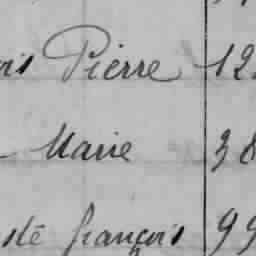 Pierre 12
Marie 38
françois 99